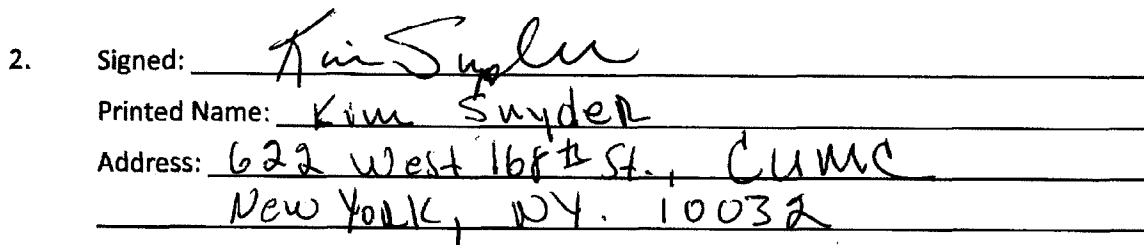 2. Signed: Kim Snyder
Printed Name: Kim Snyder
Address: 622 West 168th St., CUMC
New York, NY. 10032